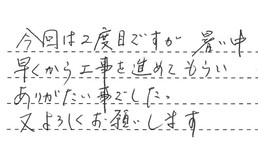 今回は2度目ですが 暑い中
早くから工事を進めてもらい
ありがたい事でした。
又よろしくお願いします